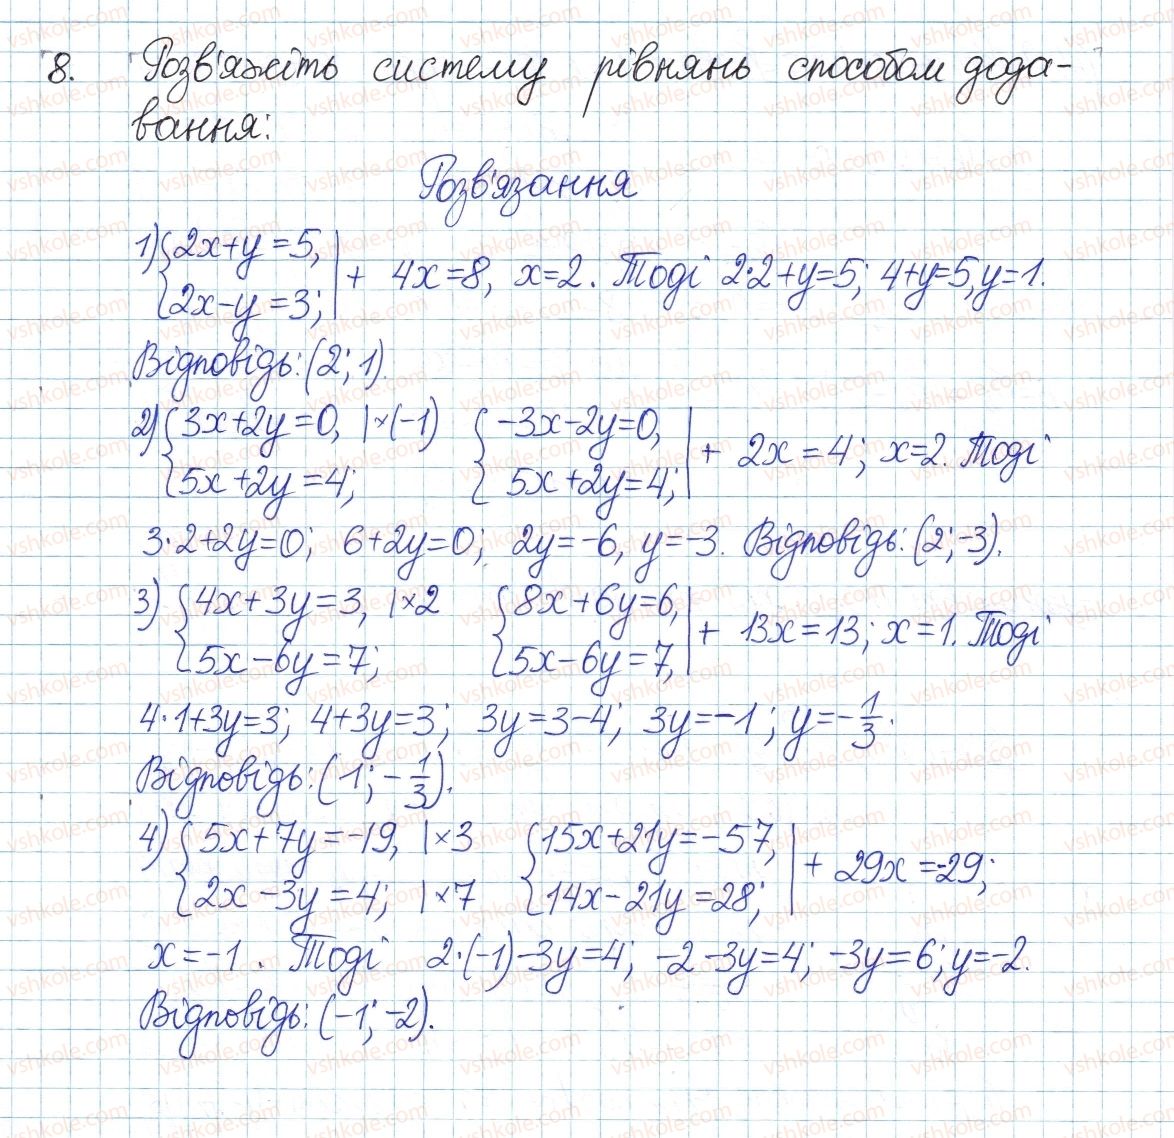 8. Розв'яжіть систему рівнянь способом дода-
вання:
Розв'язання
1) {2x+y=5, 2x-y=3; | + 4x=8, x=2. Тоді 2·2+y=5; 4+y=5, y=1.
Відповідь: (2; 1).
2) {3x+2y=0, |×(-1) 5x+2y=4; {-3x-2y=0, 5x+2y=4; | + 2x=4; x=2. Тоді
3·2+2y=0; 6+2y=0; 2y=-6, y=-3. Відповідь: (2; -3).
3) {4x+3y=3, |×2 5x-6y=7; {8x+6y=6, 5x-6y=7, | + 13x=13; x=1. Тоді
4·1+3y=3; 4+3y=3; 3y=3-4; 3y=-1; y=-1/3.
Відповідь: (1; -1/3).
4) {5x+7y=-19, |×3 2x-3y=4; |×7 {15x+21y=-57, 14x-21y=28; | + 29x=-29;
x=-1. Тоді 2·(-1)-3y=4; -2-3y=4; -3y=6; y=-2.
Відповідь: (-1; -2).
vshkole.com